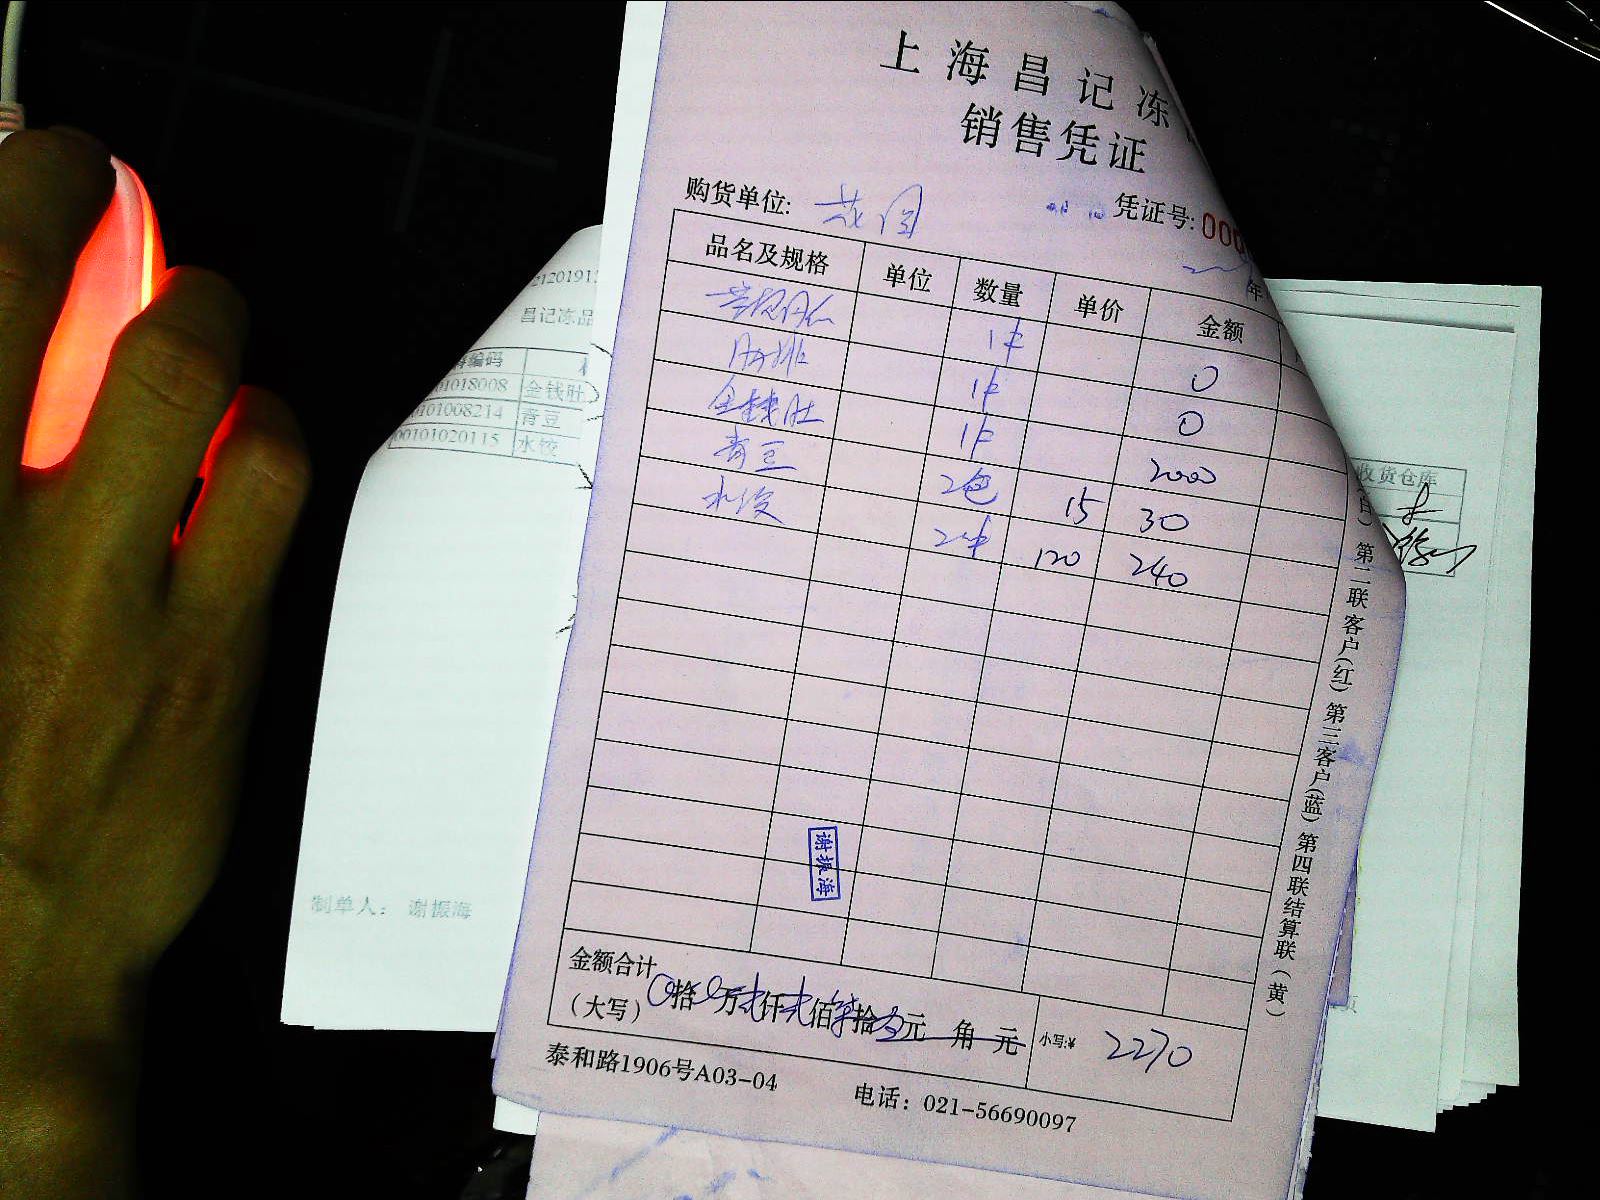 上海昌记冻
销售凭证
购货单位:
凭证号: 000
年
品名及规格 单位 数量 单价 金额
1件 0
肋排 1件 0
金钱肚 1件 2000
青豆 2包 15 30
水饺 2件 120 240
谢振海
金额合计
(大写) 拾 万 仟 佰 拾 元 角 元 小写:¥ 2270
泰和路1906号A03-04 电话: 021-56690097
第二联客户(红) 第三客户(蓝) 第四联结算联(黄)
2120191
昌记冻品
编码
01018008 金钱肚
0101008214 青豆
00101020115 水饺
制单人: 谢振海
收货仓库